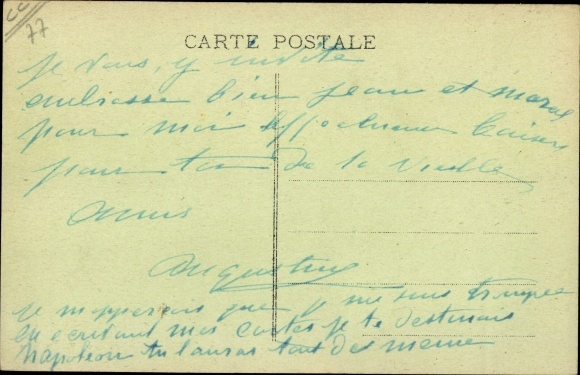 77
CARTE POSTALE
je vous y invite
embrasse bien Jean et
pour moi Affectueux baisers
pour toi de la vieille
amie
Augustine
je m'apperçois que je me suis trompée
en ecrivant mes cartes je te destinais
Napoleon tu l'auras tout de meme